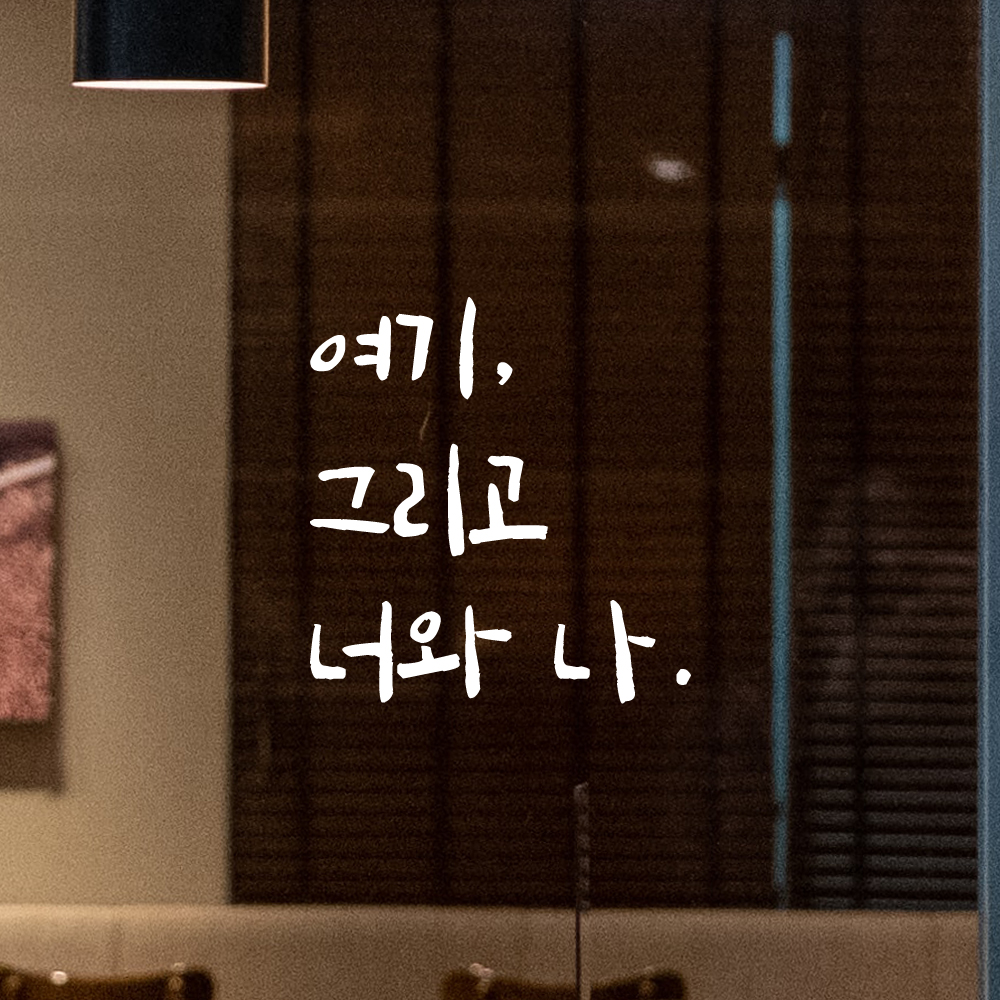 여기,
그리고
너와 나.